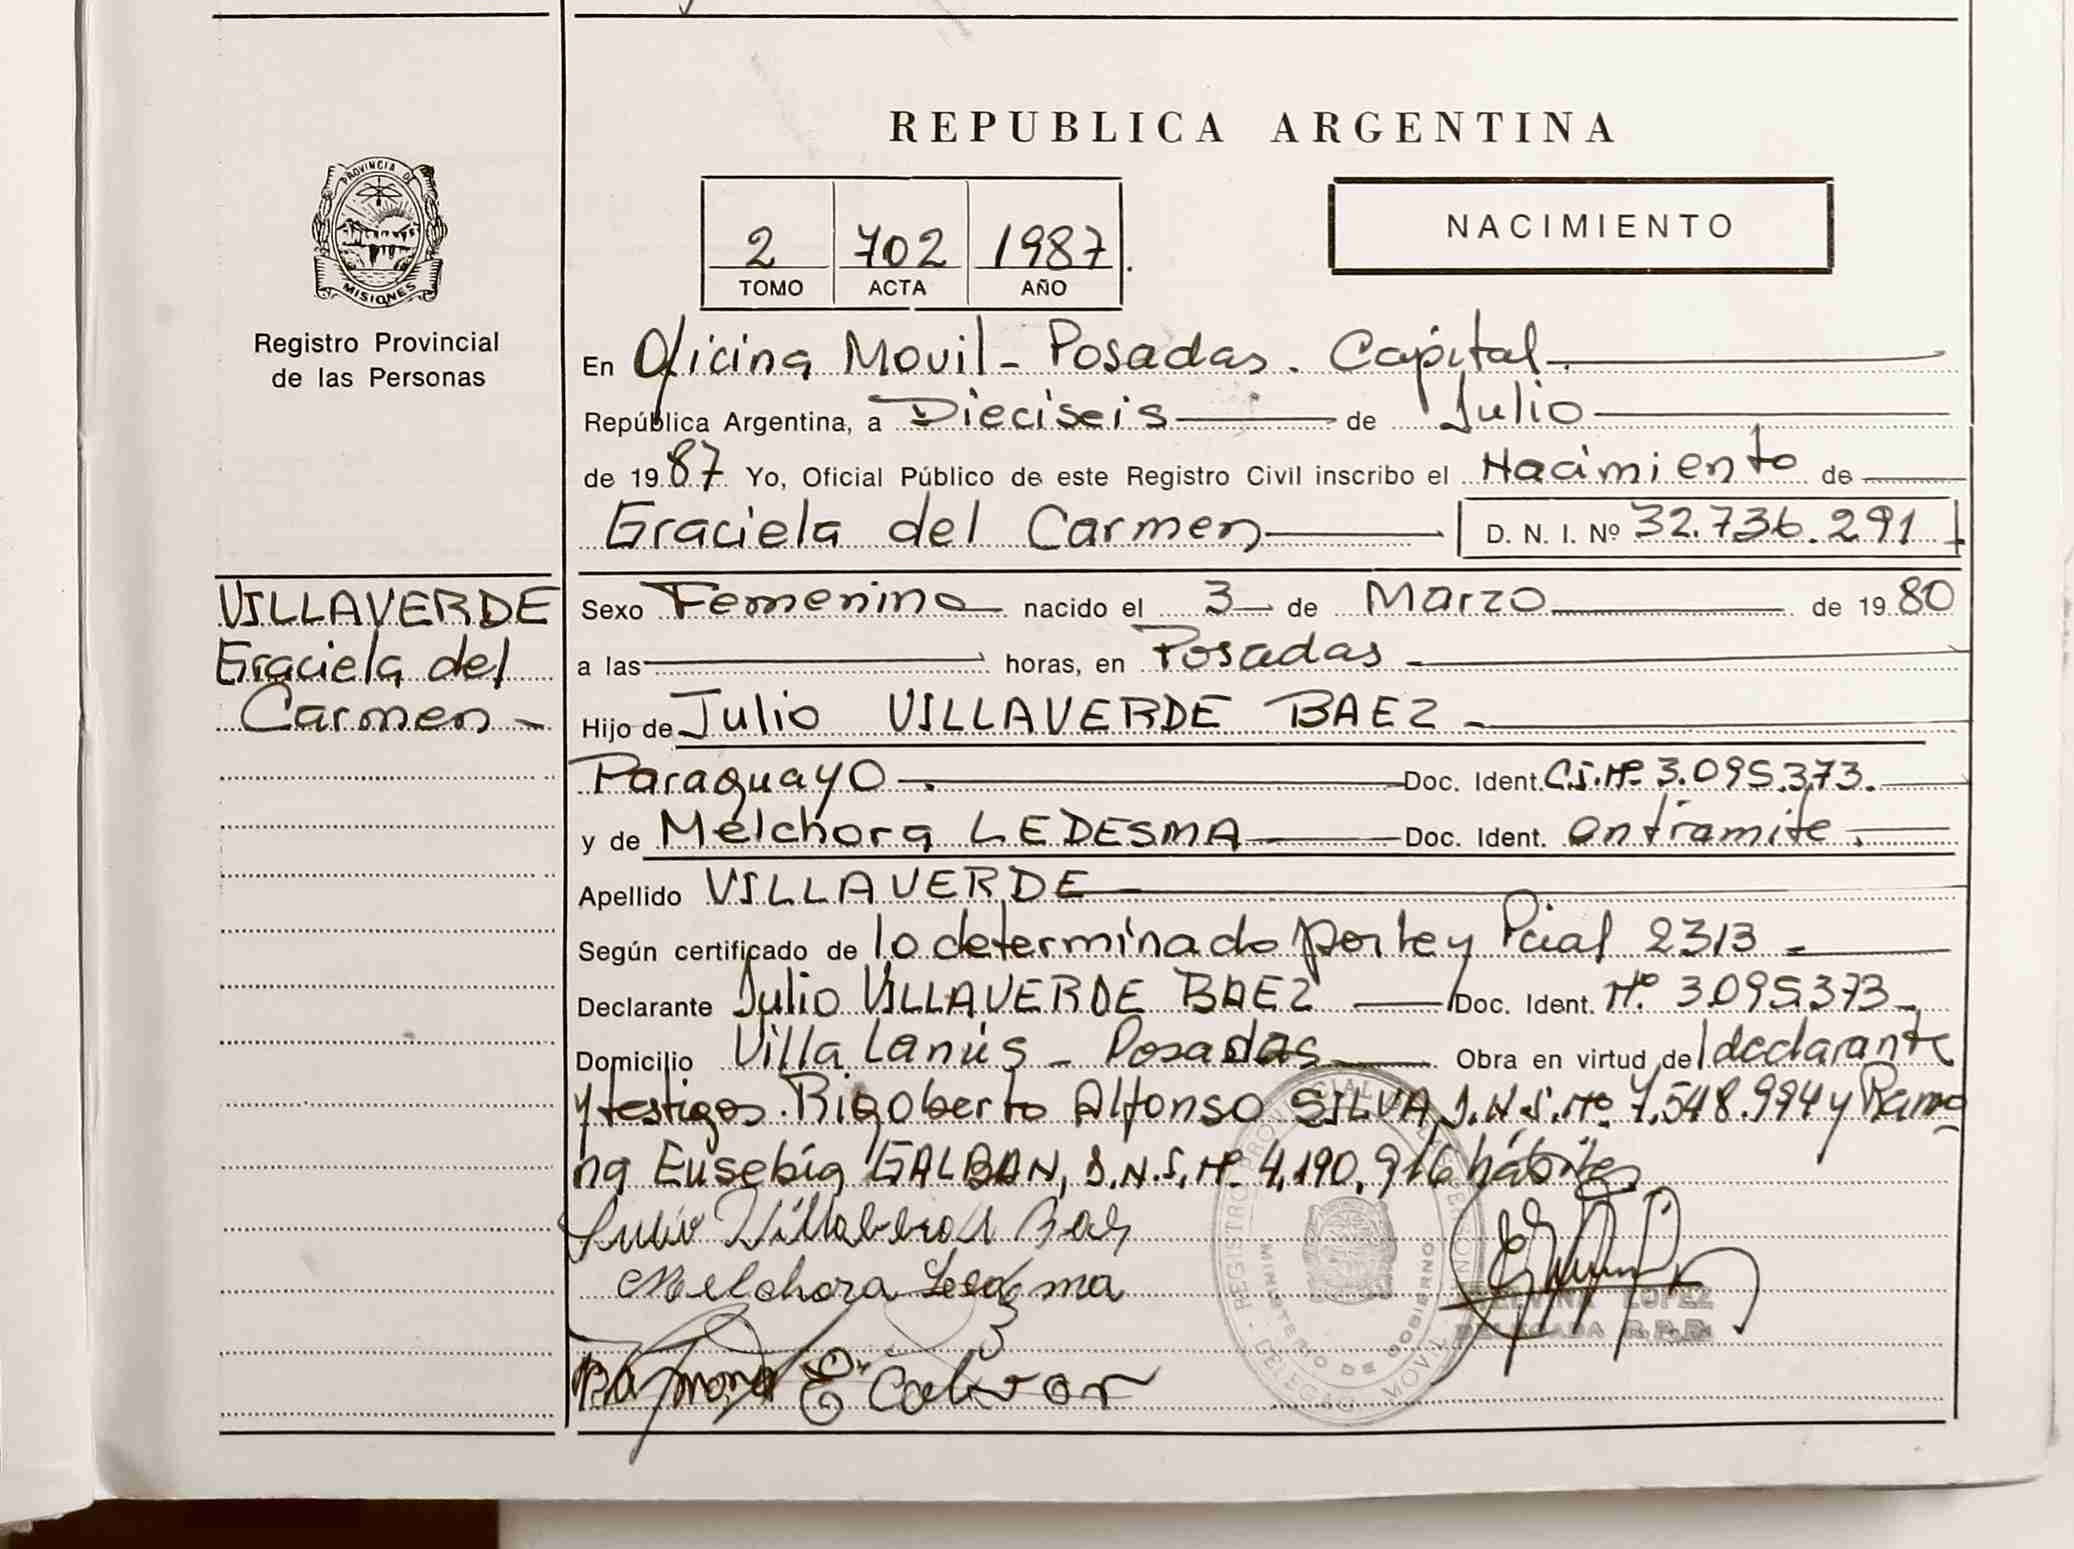 REPUBLICA ARGENTINA
PROVINCIA DE
MISIONES
Registro Provincial
de las Personas
2 702 1987
TOMO ACTA AÑO
NACIMIENTO
En Oficina Movil - Posadas. Capital
República Argentina, a Dieciseis de Julio
de 1987 Yo, Oficial Público de este Registro Civil inscribo el Nacimiento de
Graciela del Carmen D. N. I. Nº 32.736.291
VILLAVERDE
Graciela del
Carmen -
Sexo Femenino nacido el 3 de Marzo de 1980
a las horas, en Posadas
Hijo de Julio VILLAVERDE BAEZ -
Paraguayo . Doc. Ident. C.I.Nº. 3.095.373.
y de Melchora LEDESMA Doc. Ident. en tramite.
Apellido VILLAVERDE
Según certificado de lo determinado por ley Pcial 2313
Declarante Julio VILLAVERDE BAEZ Doc. Ident. Nº. 3.095.373
Domicilio Villa Lanús - Posadas Obra en virtud del declarante
y testigos. Rigoberto Alfonso SILVA, D.N.I. Nº 7.548.994 y Ramo
na Eusebia GALBAN, D.N.I. Nº. 4.190.916 hábiles
Melchora Ledesma
REGISTRO PROVINCIAL
MINISTERIO DE GOBIERNO
LOPEZ
DELEGADA R.P.P.